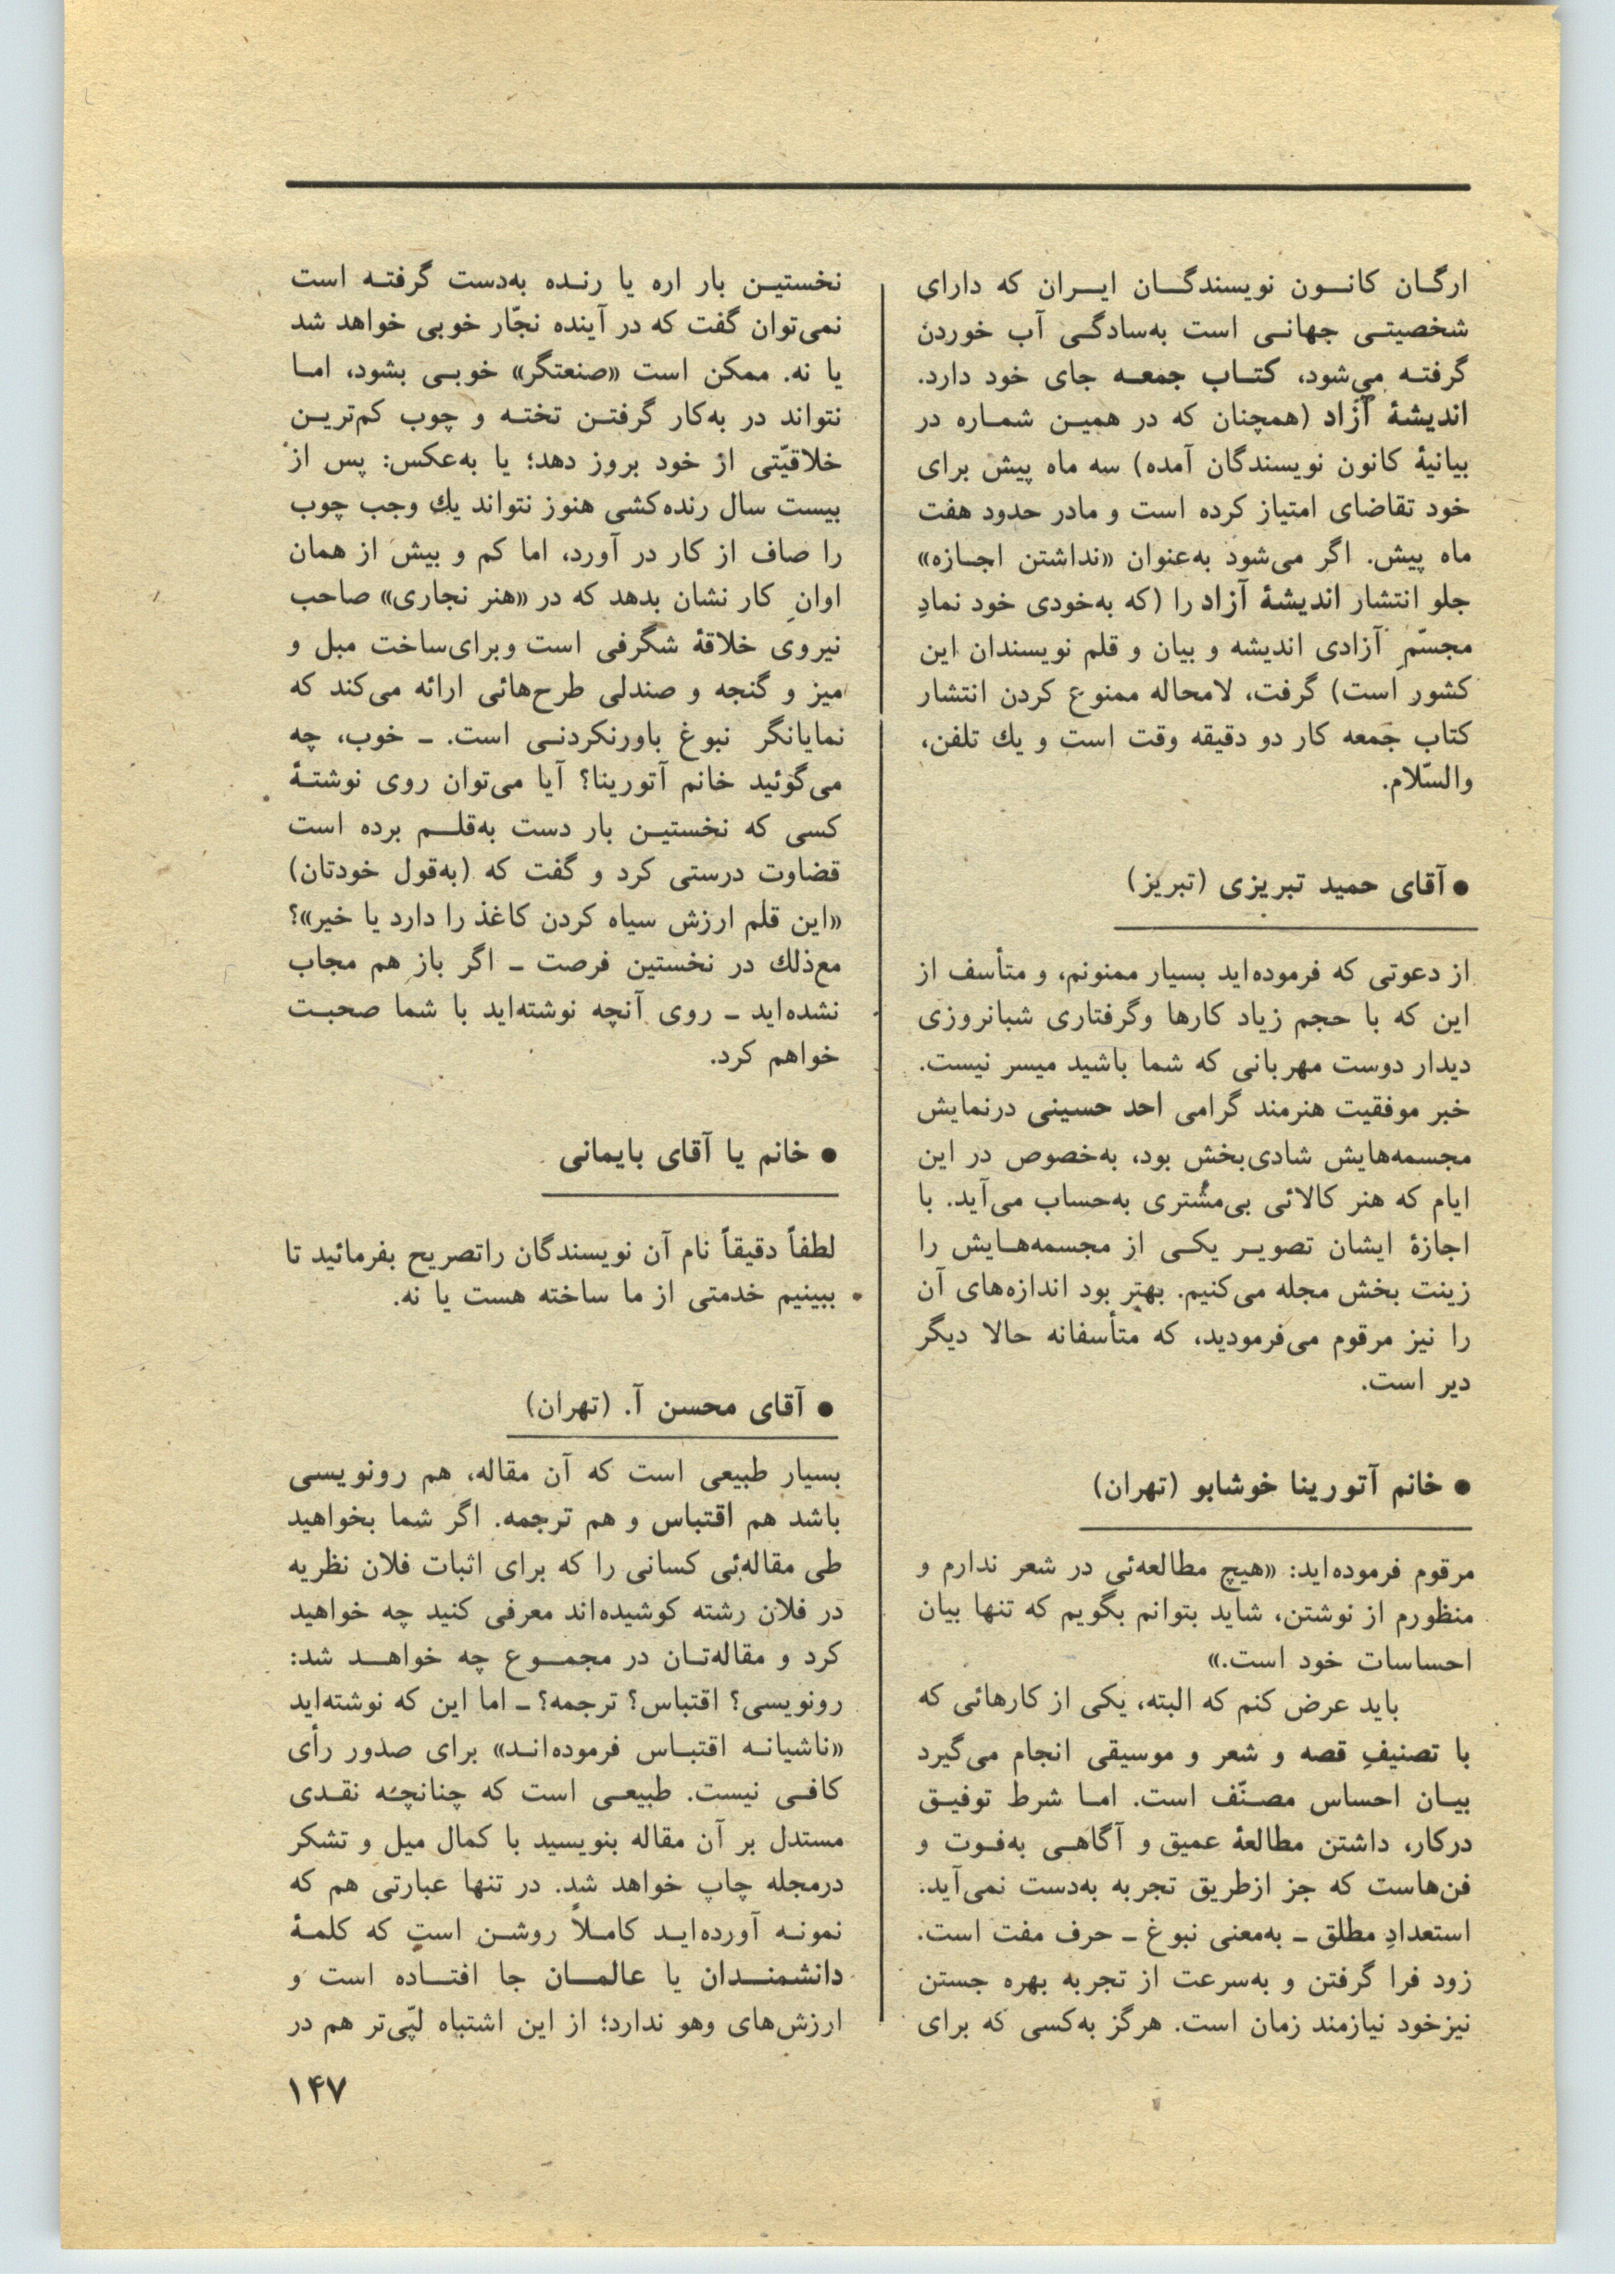 ارگان کانون نویسندگان ایران که دارای
شخصیتی جهانی است به‌سادگی آب خوردن
گرفته می‌شود، کتاب جمعه جای خود دارد.
اندیشهٔ آزاد (همچنان که در همین شماره در
بیانیهٔ کانون نویسندگان آمده) سه ماه پیش برای
خود تقاضای امتیاز کرده است و مادر حدود هفت
ماه پیش. اگر می‌شود به‌عنوان «نداشتن اجازه»
جلو انتشار اندیشهٔ آزاد را (که به‌خودی خود نمادِ
مجسّمِ آزادی اندیشه و بیان و قلم نویسندان این
کشور است) گرفت، لامحاله ممنوع کردن انتشار
کتاب جمعه کار دو دقیقه وقت است و یك تلفن،
والسّلام.
● آقای حمید تبریزی (تبریز)
از دعوتی که فرموده‌اید بسیار ممنونم، و متأسف از
این که با حجم زیاد کارها وگرفتاری شبانروزی
دیدار دوست مهربانی که شما باشید میسر نیست.
خبر موفقیت هنرمند گرامی احد حسینی درنمایش
مجسمه‌هایش شادی‌بخش بود، به‌خصوص در این
ایام که هنر کالائی بی‌مشتری به‌حساب می‌آید. با
اجازهٔ ایشان تصویر یکی از مجسمه‌هایش را
زینت بخش مجله می‌کنیم. بهتر بود اندازه‌های آن
را نیز مرقوم می‌فرمودید، که متأسفانه حالا دیگر
دیر است.
● خانم آتورینا خوشابو (تهران)
مرقوم فرموده‌اید: «هیچ مطالعه‌ئی در شعر ندارم و
منظورم از نوشتن، شاید بتوانم بگویم که تنها بیان
احساسات خود است.»
باید عرض کنم که البته، یکی از کارهائی که
با تصنیفِ قصه و شعر و موسیقی انجام می‌گیرد
بیان احساس مصنّف است. اما شرط توفیق
درکار، داشتن مطالعهٔ عمیق و آگاهی به‌فوت و
فن‌هاست که جز ازطریق تجربه به‌دست نمی‌آید.
استعدادِ مطلق ـ به‌معنی نبوغ ـ حرف مفت است.
زود فرا گرفتن و به‌سرعت از تجربه بهره جستن
نیزخود نیازمند زمان است. هرگز به‌کسی که برای
نخستین بار اره یا رنده به‌دست گرفته است
نمی‌توان گفت که در آینده نجّار خوبی خواهد شد
یا نه. ممکن است «صنعتگر» خوبی بشود، اما
نتواند در به‌کار گرفتن تخته و چوب کم‌ترین
خلاقیّتی از خود بروز دهد؛ یا به‌عکس: پس از
بیست سال رنده‌کشی هنوز نتواند یك وجب چوب
را صاف از کار در آورد، اما کم و بیش از همان
اوانِ کار نشان بدهد که در «هنر نجاری» صاحب
نیروی خلاقهٔ شگرفی است وبرای‌ساخت مبل و
میز و گنجه و صندلی طرح‌هائی ارائه می‌کند که
نمایانگر نبوغ باورنکردنی است. ـ خوب، چه
می‌گوئید خانم آتورینا؟ آیا می‌توان روی نوشتهٔ
کسی که نخستین بار دست به‌قلم برده است
قضاوت درستی کرد و گفت که (به‌قول خودتان)
«این قلم ارزش سیاه کردن کاغذ را دارد یا خیر»؟
مع‌ذلك در نخستین فرصت ـ اگر باز هم مجاب
نشده‌اید ـ روی آنچه نوشته‌اید با شما صحبت
خواهم کرد.
● خانم یا آقای بایمانی
لطفاً دقیقاً نام آن نویسندگان راتصریح بفرمائید تا
ببینیم خدمتی از ما ساخته هست یا نه.
● آقای محسن آ. (تهران)
بسیار طبیعی است که آن مقاله، هم رونویسی
باشد هم اقتباس و هم ترجمه. اگر شما بخواهید
طی مقاله‌ئی کسانی را که برای اثبات فلان نظریه
در فلان رشته کوشیده‌اند معرفی کنید چه خواهید
کرد و مقاله‌تان در مجموع چه خواهد شد:
رونویسی؟ اقتباس؟ ترجمه؟ ـ اما این که نوشته‌اید
«ناشیانه اقتباس فرموده‌اند» برای صدور رأی
کافی نیست. طبیعی است که چنانچه نقدی
مستدل بر آن مقاله بنویسید با کمال میل و تشکر
درمجله چاپ خواهد شد. در تنها عبارتی هم که
نمونه آورده‌اید کاملاً روشن است که کلمهٔ
دانشمندان یا عالمان جا افتاده است و
ارزش‌های وهو ندارد؛ از این اشتباه لپّی‌تر هم در
۱۴۷